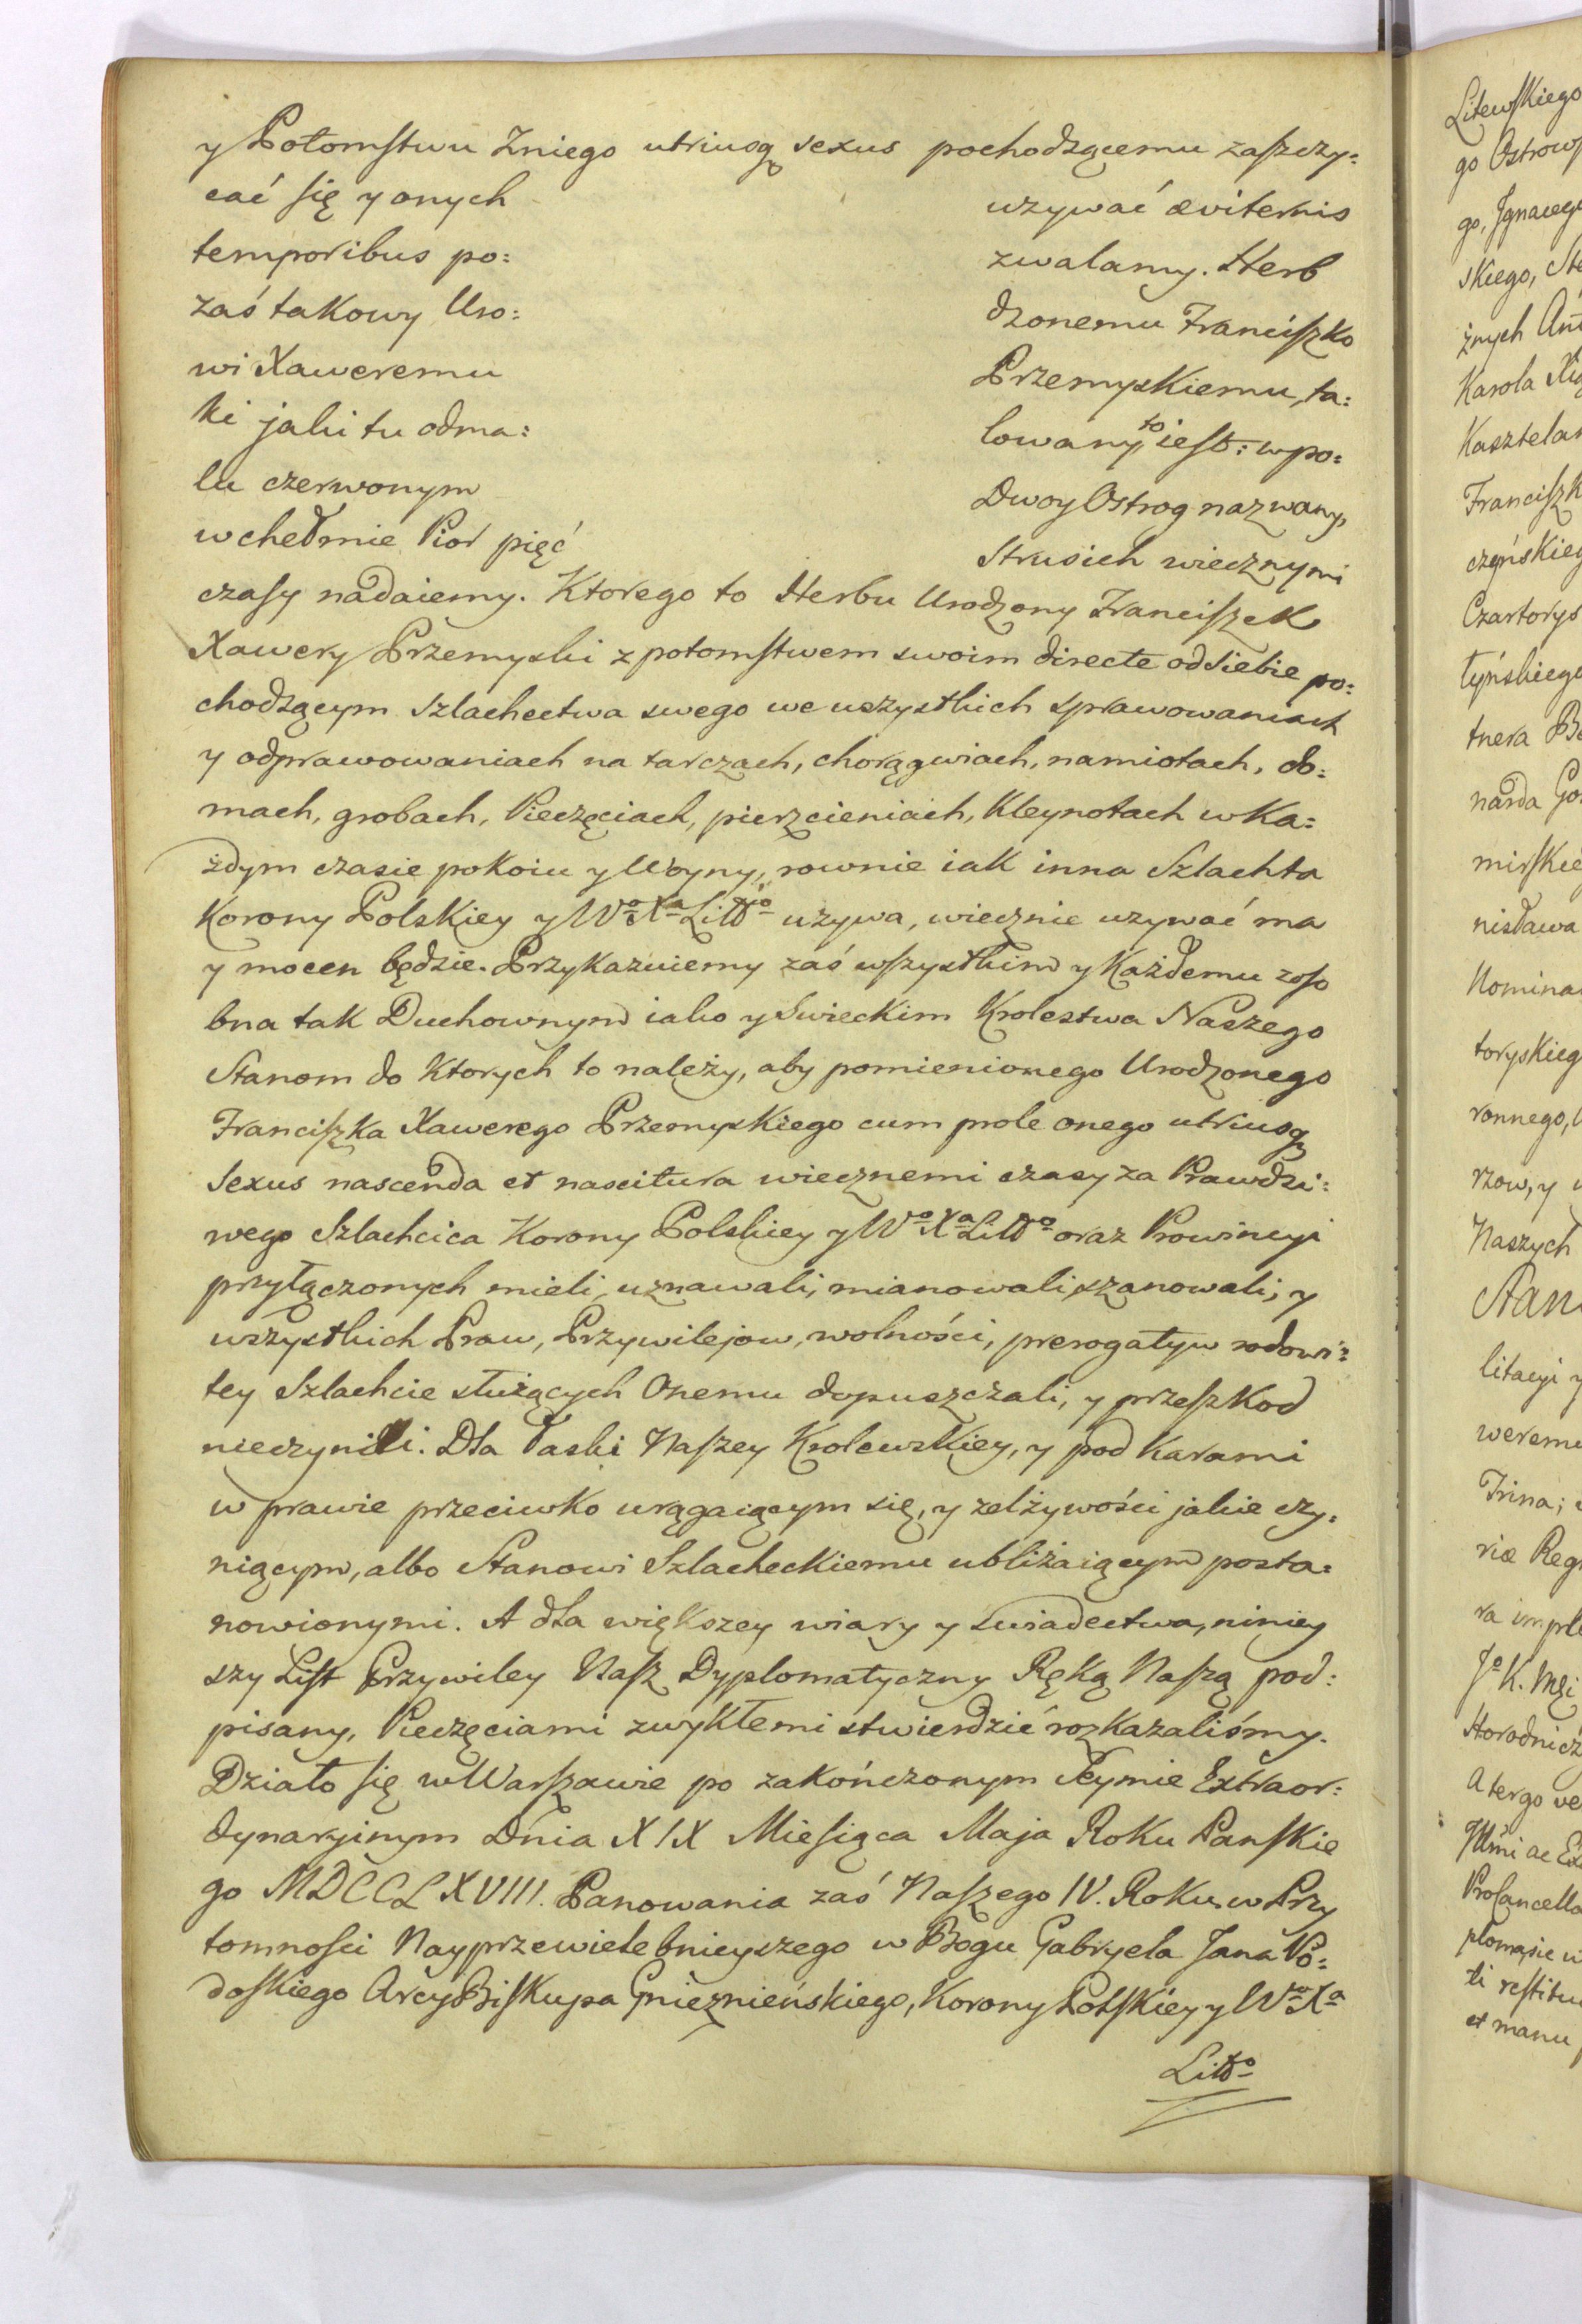 y Potomſtwu Zniego utriusq sexus pochodzącemu zaſzczy:
cać ſię y onych uzywać æviternis
temporibus po: zwalamy. Herb
zaś takowy Uro: dzonemu Franciſzko
wi Xaweremu Przemyskiemu, ta:
ki jaki tu odma: lowany, to ieſt: w po:
lu czerwonym Dwoy Ostrog nazwany,
w chełmie Pior pięć Strusich wiecznymi
czaſy nadaiemy. Ktorego to Herbu Urodzony Franciſzek
Xawery Przemyski z potomſtwem swoim directe od siebie po:
chodzącym Szlachectwa swego we wszystkich sprawowaniach
y odprawowaniach na tarczach, chorągwiach, namiotach, do:
mach, grobach, Pieczęciach, pierzcieniach, Kleynotach w Ka:
żdym czasie pokoiu y Woyny, rownie iak inna Szlachta
Korony Polskiey y Wo Xa Litto uzywa, wiecznie uzywać ma
y mocen będzie. Przykazuiemy zaś wſzystkim y Każdemu zoſo
bna tak Duchownym iako y Swieckim Krolestwa Naszego
Stanom do Ktorych to należy, aby pomienionego Urodzonego
Franciſzka Xawerego Przemyskiego cum prole onego utriusq
Sexus nascenda et nascitura wiecznemi czasy za Prawdzi:
wego Szlachcica Korony Polskiey y Wo Xa Litto oraz Prowincyi
przyłączonych mieli, uznawali, mianowali, szanowali, y
wszystkich Praw, Przywilejow, wolności, prerogatyw rodowi:
tey Szlachcie służących Onemu dopuszczali, y przeſzkod
nieczynili. Dla Łaski Naſzey Krolewskiey, y pod Karami
w prawie przeciwko urągaiącym się, y zelżywości jakie czy:
niącym, albo Stanowi Szlacheckiemu ubliżaiącym posta:
nowionymi. A dla większey wiary y swiadectwa, niniey
szy Liſt Przywiley Naſz Dyplomatyczny Ręką Naſzą pod:
pisany, Pieczęciami zwykłemi stwierdzić rozkazaliśmy.
Działo ſię w Warſzawie po zakończonym Seymie Extraor:
dynaryinym Dnia XIX Mieſiąca Maja Roku Panſkie
go MDCCLXVIII. Panowania zaś Naſzego IV. Roku. w Przy
tomnoſci Nayprzewielebnieyszego w Bogu Gabryela Jana Po:
doſkiego ArcyBiſkupa Gnieznieńskiego, Korony Polſkiey y Wo Xa
Litto
Litewſkiego
go Ostrowſ
go, Jgnacego
skiego, Ste
żnych Ant
Karola
Kasztelan
Franciſzk
czyńskieg
Czartorys
tyńskiego
tnera
narda Go
mirſkie
nisława
Nomina
toryskieg
ronnego,
rzow, y
Naszych
litacyi y
werem
Trina;
riæ Reg
ra imple
Jo K. Mci
Horodnicz
A tergo
Jllmi ac Ex
Procancella
ti reſtitu
et manu